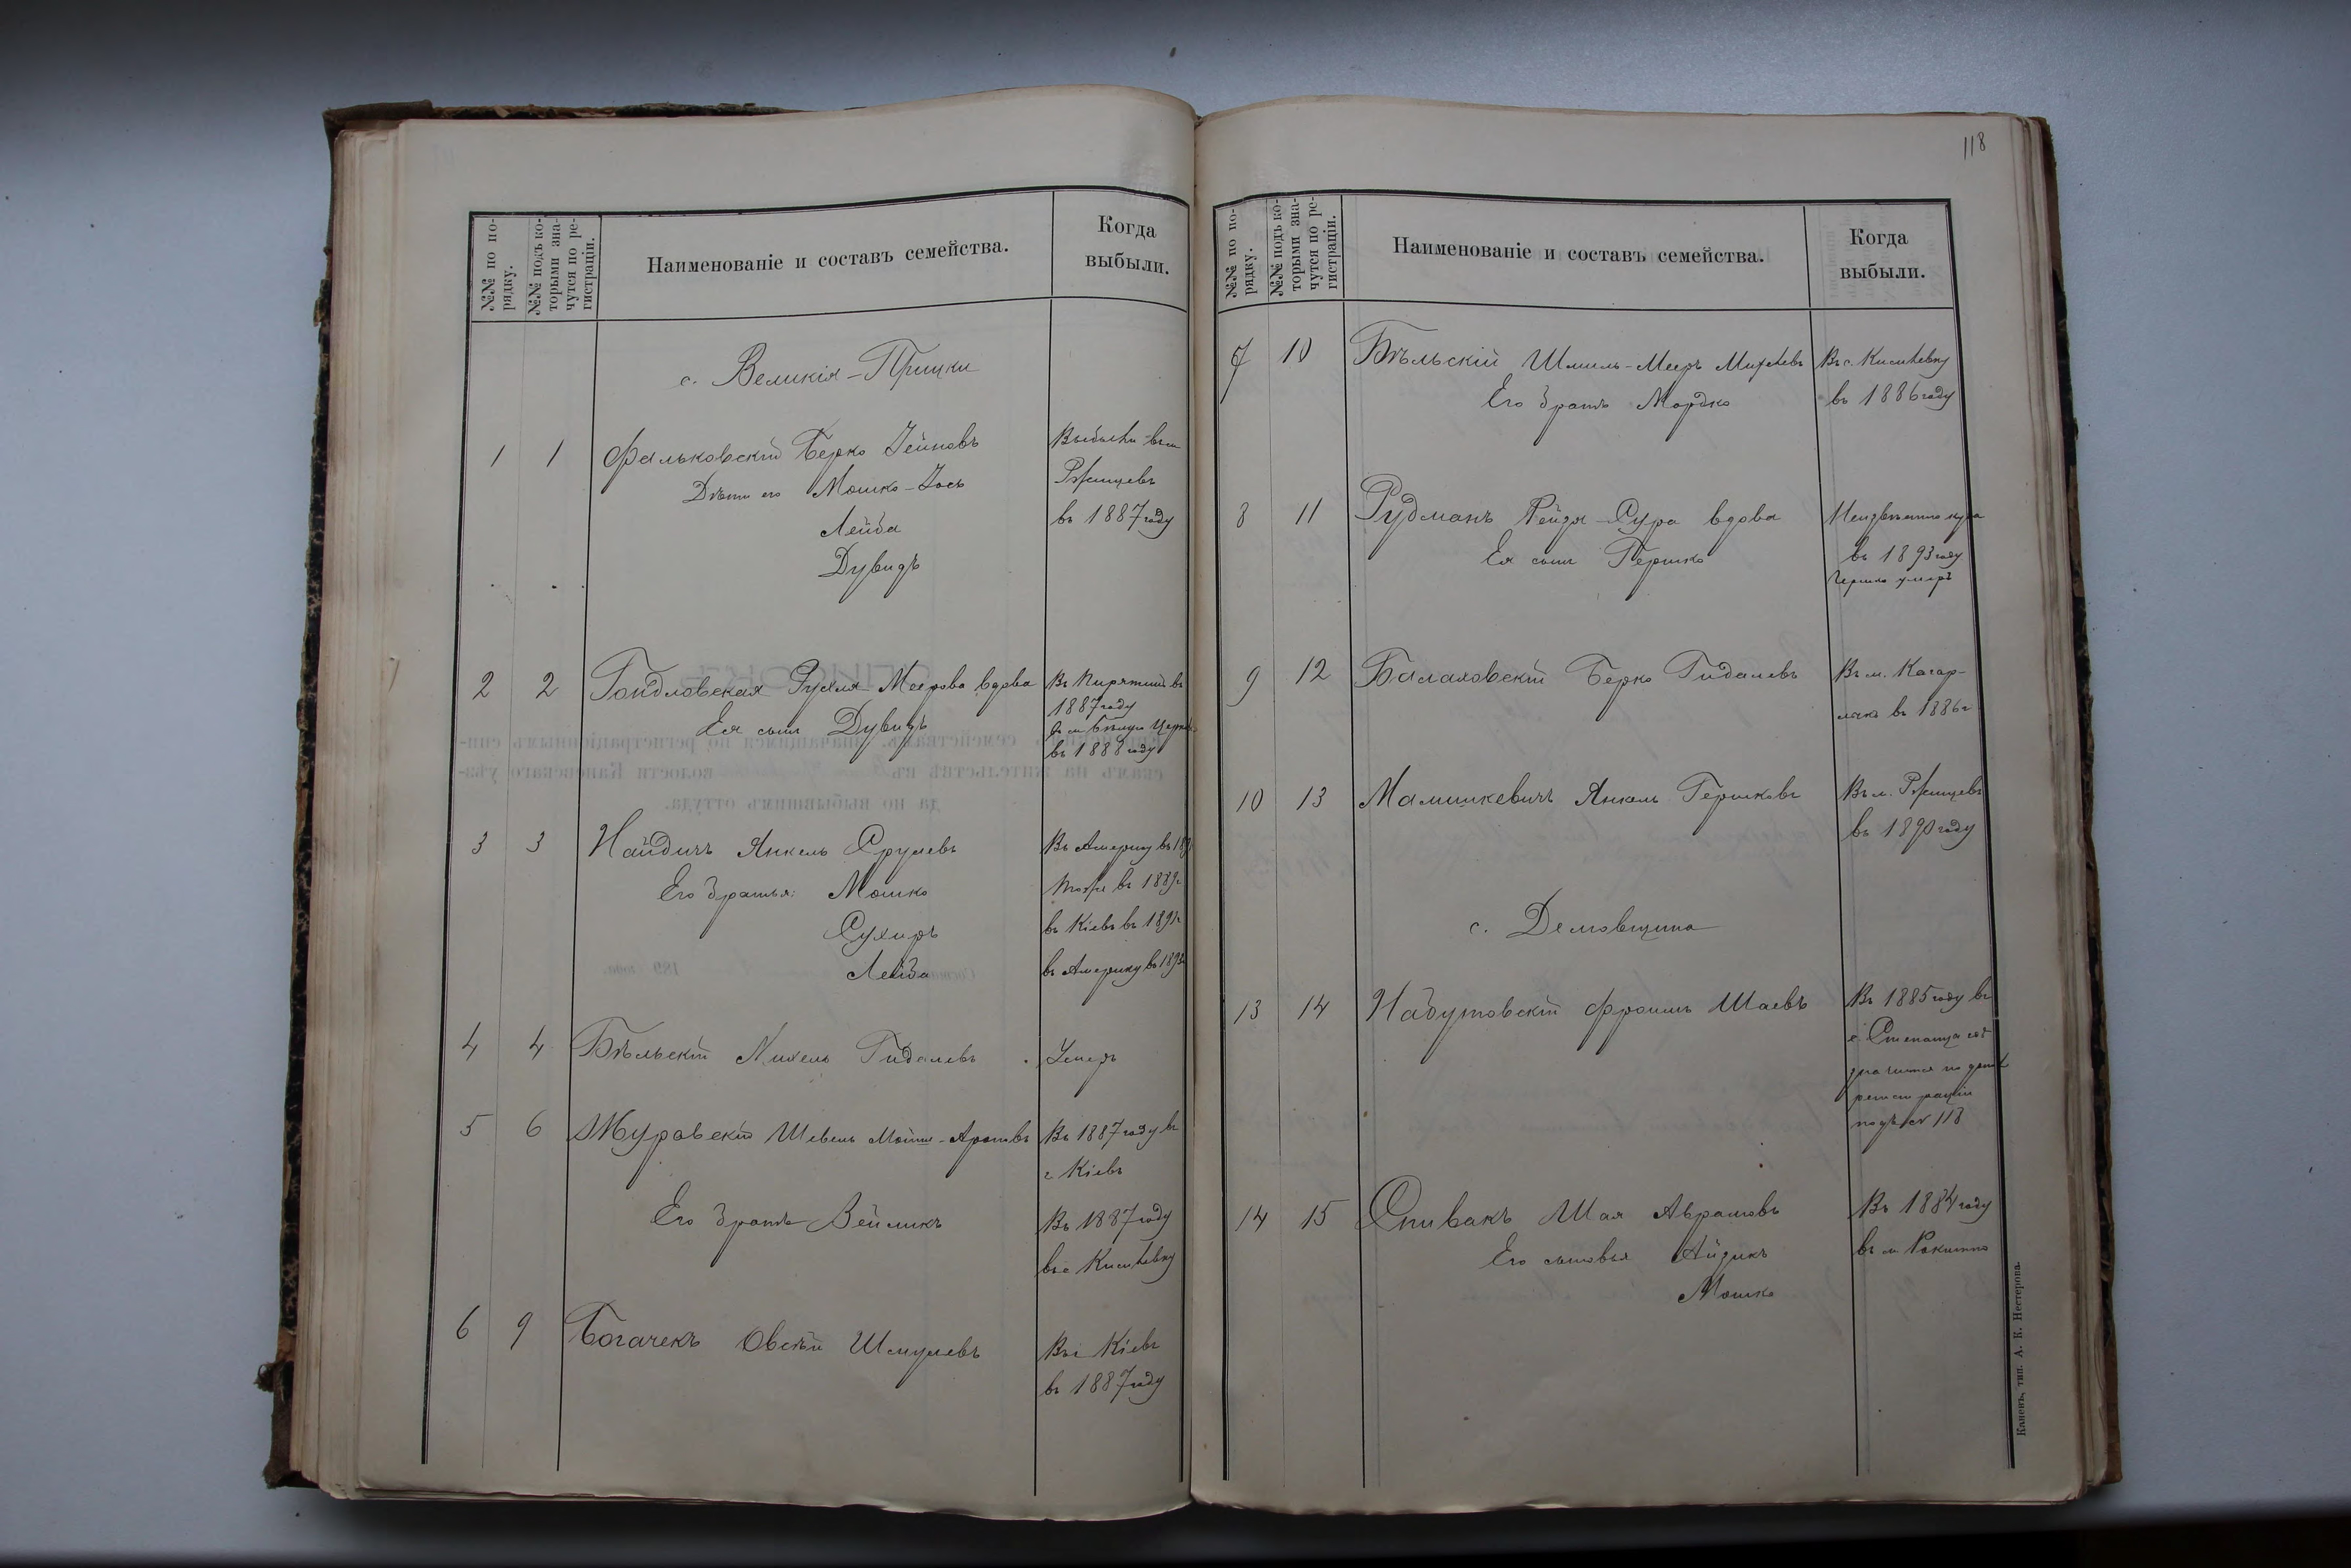 118
№№ по по-
рядку.
№№ подъ ко-
торыми зна-
чутся по ре-
гистраціи.
Наименованіе и составъ семейства.
Когда
выбыли.
с. Великія-Прицки
1 1 Фальковскій Берко Зейновъ
Дѣти его Мошко-Іось
Лейба
Дувидъ
Выбыли въ м
Ржищевъ
въ 1887 году
2 2 Гондловская Рухля Меерова вдова
Ея сынъ Дувидъ
Въ Пирятинъ въ
1887 году
въ 1888 году
3 3 Найдичъ Янкель Срулевъ
Въ Америку въ
Его братья: Мошко
тоже въ 1889г
Сухеръ
въ Кіевъ въ 1891г
Лейба
въ Америку въ
4 4 Бѣльскій Михель Гидалевъ
Умеръ
5 6 Журавскій Шевель Ароновъ
Въ 1887 году въ
г Кіевъ
Его братъ Зейликъ
Въ 1887 году
въ с
6 9 Богачекъ Овсѣй Шмулевъ
Въ г Кіевъ
въ 1887 году
№№ по по-
рядку.
№№ подъ ко-
торыми зна-
чутся по ре-
гистраціи.
Наименованіе и составъ семейства.
Когда
выбыли.
7 10 Бѣльскій Шмиль-Мееръ Михелевъ
Его братъ Мордко
Въ с.
въ 1886 году
8 11 Рудманъ Рейзя-Сура вдова
Ея сынъ Гершко
Неизвѣстно куда
въ 1893 году
Гершко умеръ
9 12 Балаховскій Берко Гидалевъ
Въ м. Кагар-
лыкъ въ 1886г
10 13 Янкель Гершковъ
Въ м. Ржищевъ
въ 1890 году
с. Демовщина
13 14 Набутовскій Фроимъ Шаевъ
Въ 1885 году въ
с. Степанцы гдѣ
значится по
регистраціи
подъ № 118
14 15 Спивакъ Шая Аврамовъ
Его сыновья Айзикъ
Мошко
Въ 1884 году
въ м. Рокитно
Каневъ, тип. А. К. Нестерова.